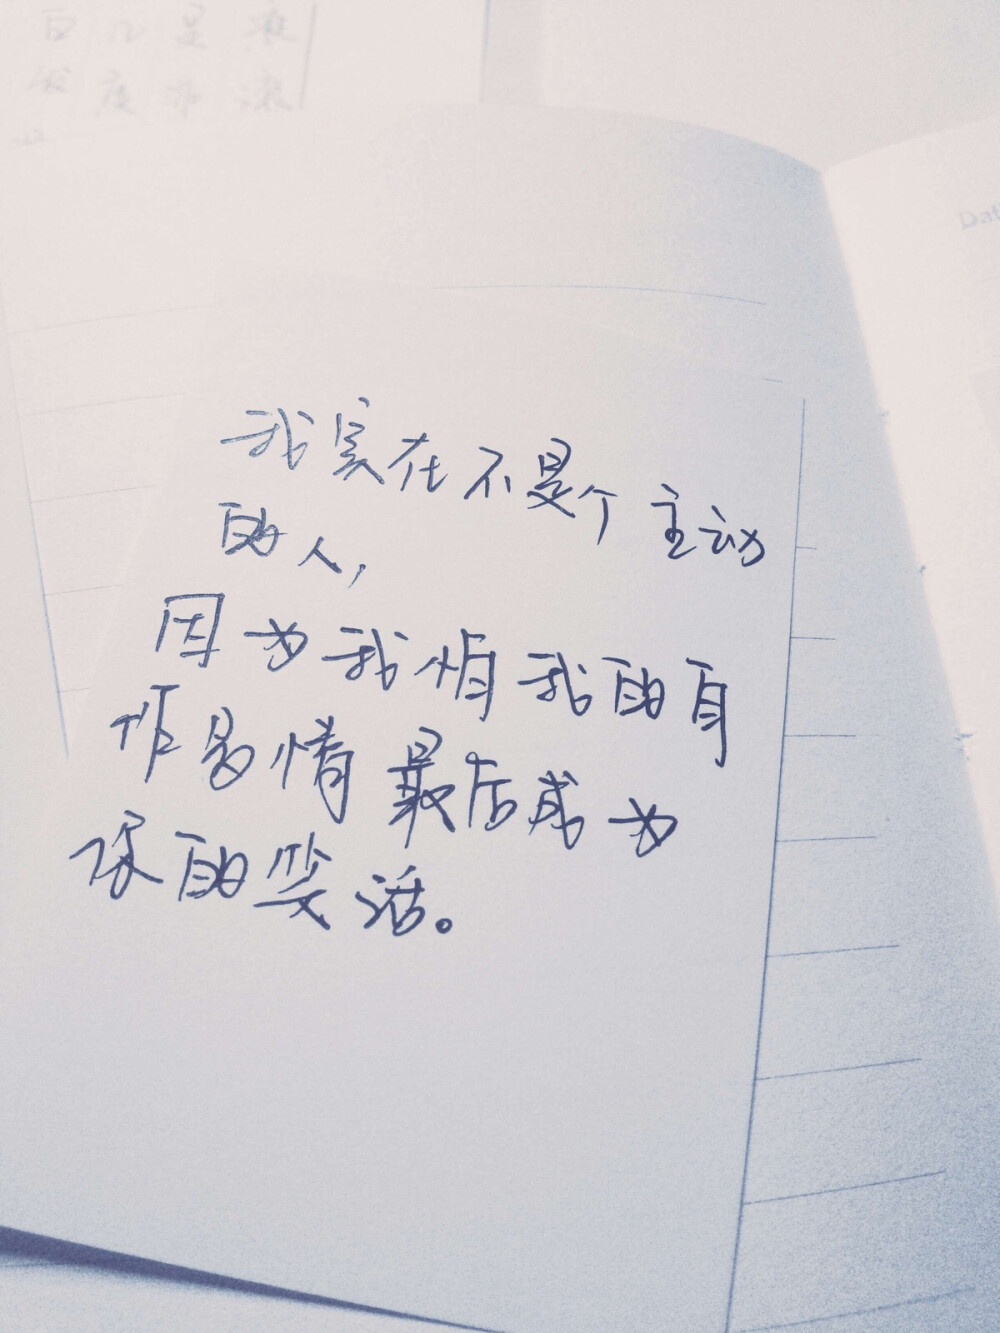 我实在不是个主动
的人，
因为我怕我的自
作多情最后成为
你的笑话。
Dat